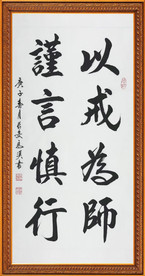 以戒為師
謹言慎行
庚子春月